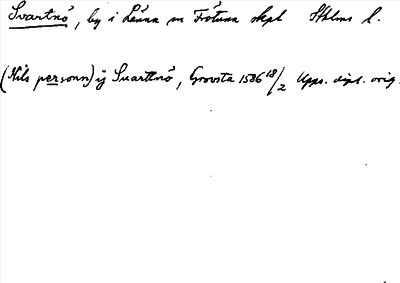 Svartnö, by i Länna sn Frötuna skpl Sthlms l.
(Nils personn) ij Suartnö, Grovsta 1506 18/2 Upps. dipl. orig.